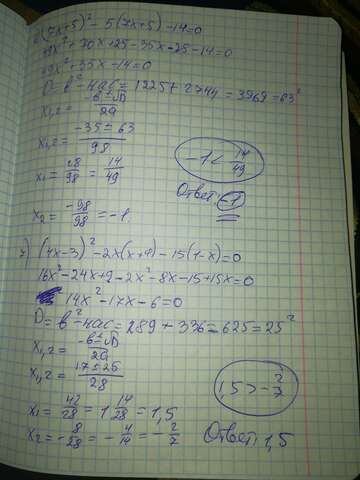 (7x+5)² - 5(7x+5) - 14=0
49x²+70x+25-35x-25-14=0
49x²+35x-14=0
D=b²-4ac=1225+2744=3969=63²
x₁,₂= -b±√D / 2a
x₁,₂= -35±63 / 98
x₁= 28/98 = 14/49
-1< 14/49
Ответ: -1
x₂= -98/98 = -1.
7) (4x-3)²-2x(x+4)-15(1-x)=0
16x²-24x+9-2x²-8x-15+15x=0
14x²-17x-6=0
D=b²-4ac=289+336=625=25²
x₁,₂= -b±√D / 2a
x₁,₂= 17±25 / 28
1,5>-2/7
x₁= 42/28 = 1 14/28 = 1,5
x₂=-8/28 = -4/14 = -2/7
Ответ: 1,5